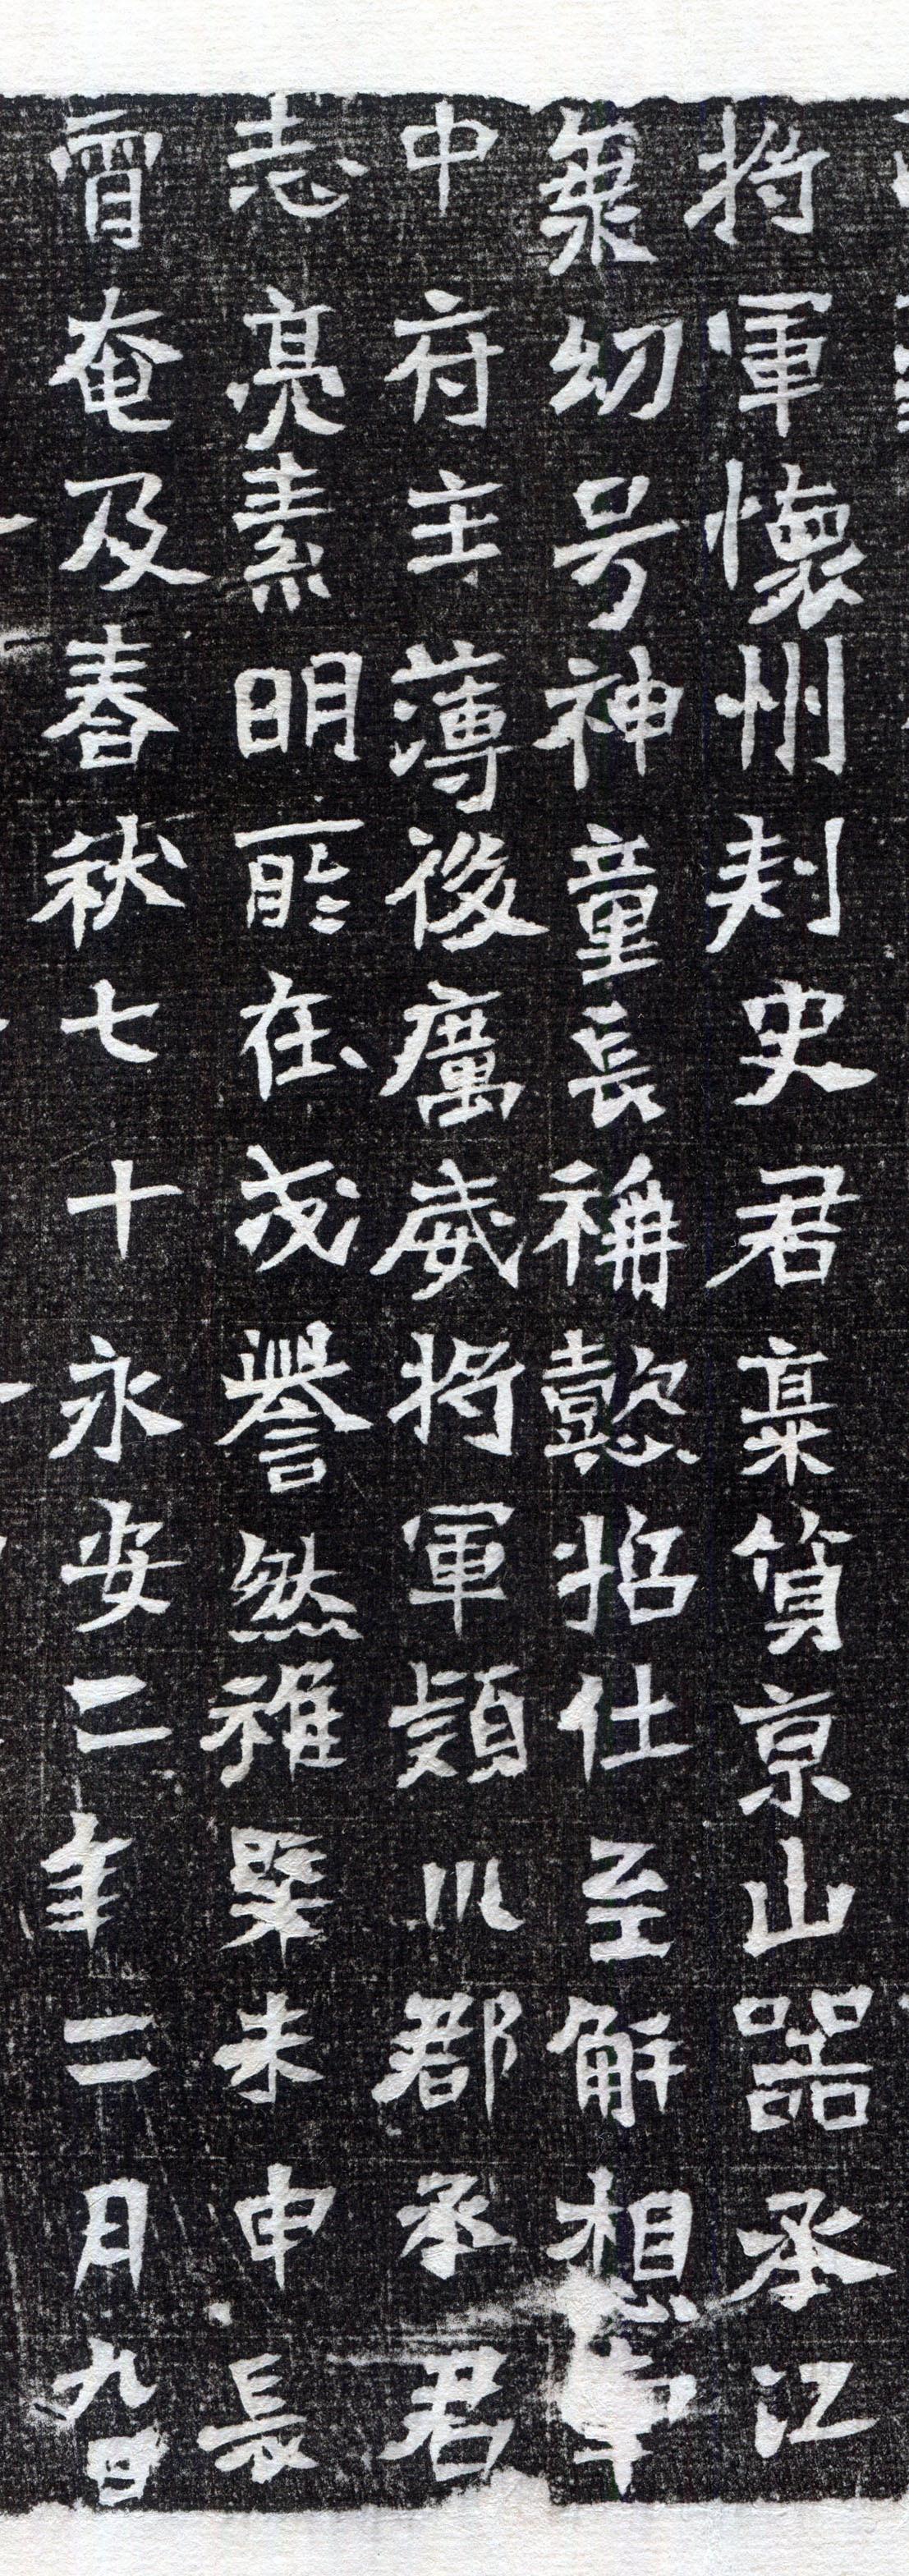 將軍懷州刾史君稟質京山器承江
衆幼号神童長稱懿招仕至解想
中府主薄後廣威將軍頻以郡丞君
志亮素明所在茂譽然雅槩未申長
宵奄及春秋七十永安二年二月九日